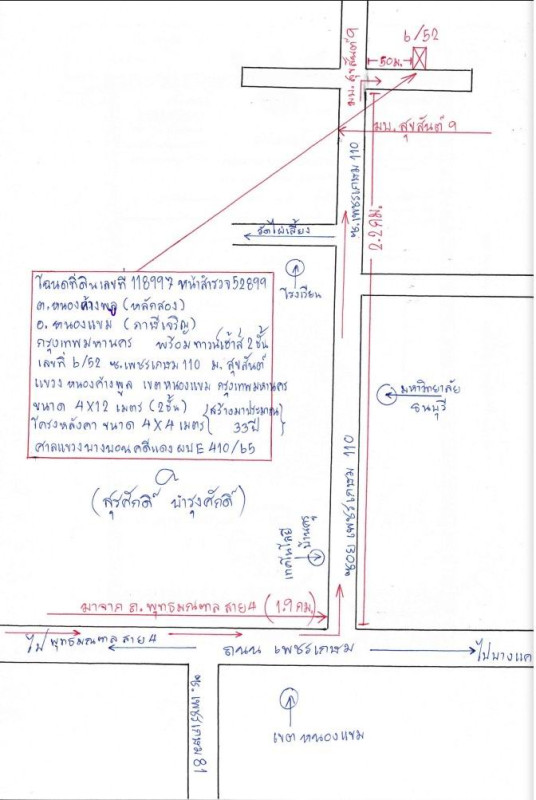 6/52
50ม.
มบ. สุขสันต์ 9
มบ. สุขสันต์ 9
ซ. เพชรเกษม 110
2.2 คม.
วัดไผ่เลี้ยง
โรงเรียน
โฉนดที่ดินเลขที่ 118997 หน้าสำรวจ 52899
ต.หนองค้างพลู (หลักสอง)
อ. หนองแขม (ภาษีเจริญ)
กรุงเทพมหานคร พร้อมทาวน์เฮ้าส์ 2 ชั้น
เลขที่ 6/52 ซ.เพชรเกษม 110 ม. สุขสันต์
แขวง หนองค้างพูล เขตหนองแขม กรุงเทพมหานคร
ขนาด 4X12 เมตร (2ชั้น) (สร้างมาประมาณ
โครงหลังคา ขนาด 4X4 เมตร 33ปี)
ศาลแขวงบางบอน คดีแดง ผบ E 410/65
(สุรศักดิ์ บำรุงศักดิ์)
มหาวิทยาลัย
ธนบุรี
ซอย เพชรเกษม 110
เทคโนโลยี
บ้านครู
มาจาก ถ. พุทธมณฑล สาย 4 (1.9 คม.)
ไป พุทธมณฑล สาย 4
ถนน เพชรเกษม
ไปบางแค
ซ. เพชรเกษม 81
เขต หนองแขม